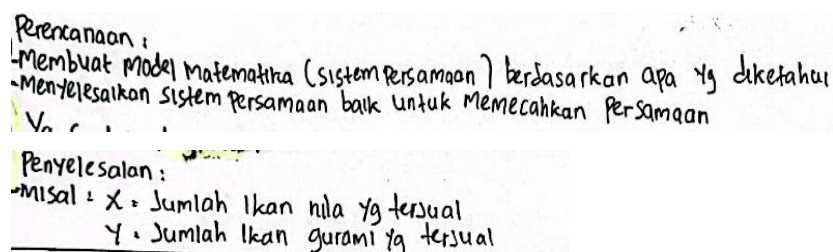 Perencanaan :
-Membuat Model Matematika (sistem Persamaan) berdasarkan apa yg diketahui
-Menyelesaikan sistem Persamaan baik untuk Memecahkan Persamaan
Penyelesaian :
-Misal : X = Jumlah Ikan nila yg terjual
Y = Jumlah Ikan gurami yg terjual